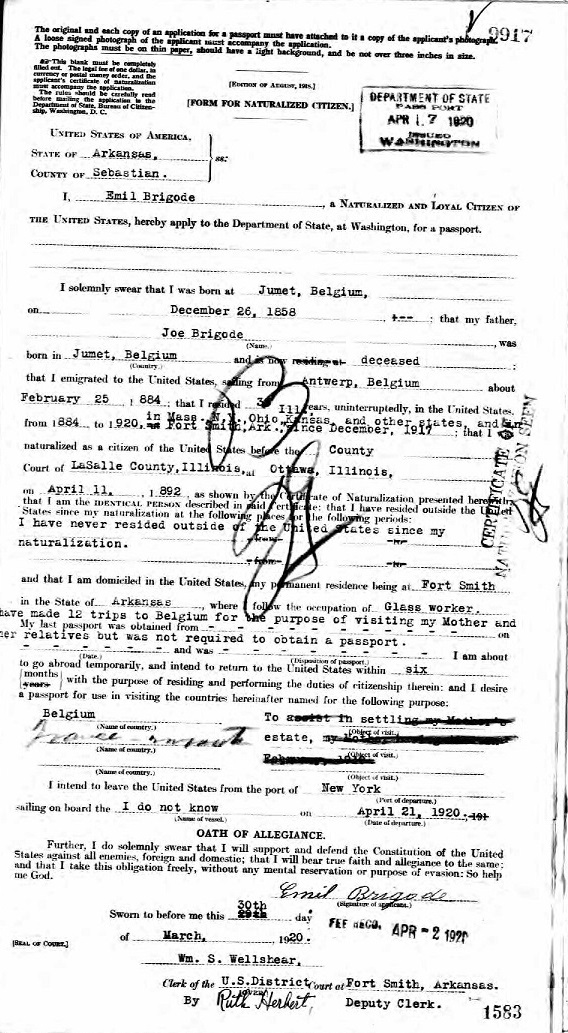 The original and each copy of an application for a passport must have attached to it a copy of the applicant's photograph.
A loose signed photograph of the applicant must accompany the application.
The photographs must be on thin paper, should have a light background, and be not over three inches in size.
9917
This blank must be completely
filled out. The legal fee of one dollar, in
currency or postal money order, and the
applicant's certificate of naturalization
must accompany the application.
The rules should be carefully read
before mailing the application to the
Department of State, Bureau of Citizen-
ship, Washington, D. C.
[EDITION OF AUGUST, 1918.]
[FORM FOR NATURALIZED CITIZEN.]
DEPARTMENT OF STATE
PASSPORT
APR 17 1920
ISSUED
WASHINGTON
UNITED STATES OF AMERICA,
STATE OF Arkansas, ss:
COUNTY OF Sebastian.
I, Emil Brigode, a NATURALIZED AND LOYAL CITIZEN OF
THE UNITED STATES, hereby apply to the Department of State, at Washington, for a passport.
I solemnly swear that I was born at Jumet, Belgium,
on December 26, 1858 : that my father,
Joe Brigode, was
(Name.)
born in Jumet, Belgium and is now residing at deceased ;
(Country.)
that I emigrated to the United States, sailing from Antwerp, Belgium about
February 25 1884; that I resided 36 years, uninterruptedly, in the United States,
Ill
in Mass. N.Y. Ohio, Kansas, and other states, and in
from 1884 to 1920, Fort Smith, Ark., since December, 1917 ; that I
naturalized as a citizen of the United States before the County
Court of LaSalle County, Illinois, at Ottawa, Illinois,
on April 11, 1892, as shown by the Certificate of Naturalization presented herewith;
that I am the IDENTICAL PERSON described in said Certificate; that I have resided outside the United
States since my naturalization at the following places for the following periods:
I have never resided outside of the United States since my
naturalization. from to
from to
CERTIFICATE OF
NATURALIZATION SEEN
and that I am domiciled in the United States, my permanent residence being at Fort Smith
in the State of Arkansas, where I follow the occupation of Glass worker.
have made 12 trips to Belgium for the purpose of visiting my Mother and
My last passport was obtained from - - - - on
her relatives but was not required to obtain a passport.
- - - and was - - - - I am about
(Date.) (Disposition of passport.)
to go abroad temporarily, and intend to return to the United States within six
months
years with the purpose of residing and performing the duties of citizenship therein; and I desire
a passport for use in visiting the countries hereinafter named for the following purpose:
Belgium To assist in settling my Mother's
(Name of country.) (Object of visit.)
France estate, my
(Name of country.) (Object of visit.)
(Name of country.) (Object of visit.)
I intend to leave the United States from the port of New York
(Port of departure.)
sailing on board the I do not know on April 21, 1920, 191
(Name of vessel.) (Date of departure.)
OATH OF ALLEGIANCE.
Further, I do solemnly swear that I will support and defend the Constitution of the United
States against all enemies, foreign and domestic; that I will bear true faith and allegiance to the same;
and that I take this obligation freely, without any mental reservation or purpose of evasion: So help
me God.
Emil Brigode
(Signature of applicant.)
30th
Sworn to before me this 29th day
FEE REC'D. APR -2 1920
of March, 1920.
[SEAL OF COURT.]
Wm. S. Wellshear,
Clerk of the U.S. District Court at Fort Smith, Arkansas.
By Ruth Herbert, Deputy Clerk.
1583